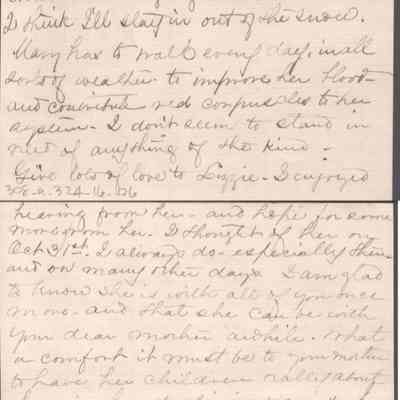 I think I'll stay in out of the snow.
Mary has to walk every day, in all
sorts of weather to improve her blood -
and contribute red corpuscles to her
system - I don't seem to stand in
need of anything of the kind -
Give lots of love to Lizzie - I enjoyed
hearing from her - and hope for some
more from her. I thought of her on
Oct 31st. I always do - especially then -
and on many other days I am glad
to know she is with all of you once
more - and that she can be with
your dear mother awhile. What
a comfort it must be to your mother
to have her children rally about